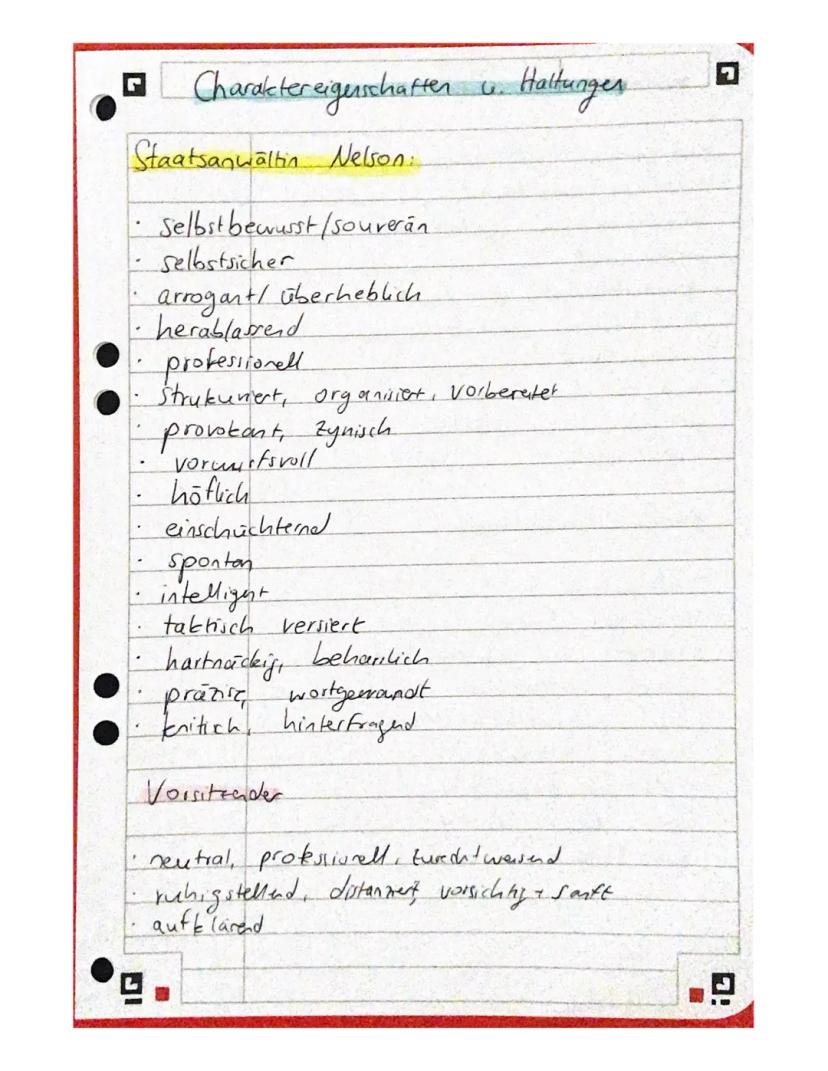 Charaktereigenschaften u. Haltungen
Staatsanwältin Nelson:
· selbstbewusst/souverän
· selbstsicher
· arrogant/ überheblich
· herablassend
· professionell
· strukturiert, organisiert, vorbereitet
· provokant, zynisch
· vorwurfsvoll
· höflich
· einschüchternd
· spontan
· intelligent
· taktisch versiert
· hartnäckig, beharrlich
· präzise, wortgewandt
· kritisch, hinterfragend
Vorsitzender
· neutral, professionell, zurechtweisend
· ruhigstellend, distanziert, vorsichtig + sanft
· aufklärend